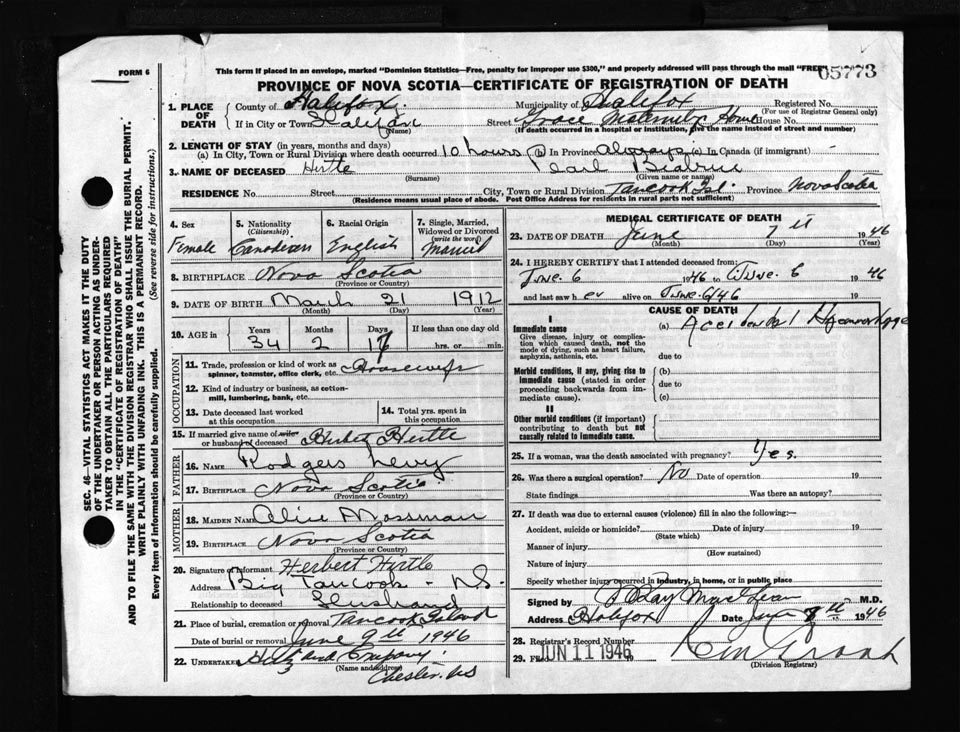 FORM 6
This form if placed in an envelope, marked "Dominion Statistics—Free, penalty for improper use $300," and properly addressed will pass through the mail "FREE"
05773
PROVINCE OF NOVA SCOTIA—CERTIFICATE OF REGISTRATION OF DEATH
1. PLACE OF DEATH County of Halifax. Municipality of Halifax Registered No.
(For use of Registrar General only)
If in City or Town Halifax Street Grace Maternity Home House No.
(Name) (If death occurred in a hospital or institution, give the name instead of street and number)
2. LENGTH OF STAY (in years, months and days)
(a) In City, Town or Rural Division where death occurred 10 hours (b) In Province Always (c) In Canada (if immigrant)
3. NAME OF DECEASED Hirtle Pearl Beatrice
(Surname) (Given name or names)
RESIDENCE No. Street City, Town or Rural Division Tancook Isl. Province Nova Scotia
(Residence means usual place of abode. Post Office Address for residents in rural parts not sufficient)
4. Sex 5. Nationality 6. Racial Origin 7. Single, Married, Widowed or Divorced
(Citizenship) (write the word)
Female Canadian English Married
8. BIRTHPLACE Nova Scotia
(Province or Country)
9. DATE OF BIRTH March 21 1912
(Month) (Day) (Year)
10. AGE in Years Months Days If less than one day old
34 2 17 hrs. or min.
OCCUPATION
11. Trade, profession or kind of work as spinner, teamster, office clerk, etc. Housewife
12. Kind of industry or business, as cotton-mill, lumbering, bank, etc.
13. Date deceased last worked at this occupation
14. Total yrs. spent in this occupation
15. If married give name of wife or husband of deceased Herbert Hirtle
FATHER
16. NAME Rodgers Levy
17. BIRTHPLACE Nova Scotia
(Province or Country)
MOTHER
18. MAIDEN NAME Alice Mossman
19. BIRTHPLACE Nova Scotia
(Province or Country)
20. Signature of informant Herbert Hirtle
Address Big Tancook - N.S.
Relationship to deceased Husband
21. Place of burial, cremation or removal Tancook Island
Date of burial or removal June 9th 1946
22. Undertaker and Company
(Name and address)
Chester. NS
MEDICAL CERTIFICATE OF DEATH
23. DATE OF DEATH June 7th 1946
(Month) (Day) (Year)
24. I HEREBY CERTIFY that I attended deceased from:
June 6 1946 to June 6 1946
and last saw her alive on June 6/46 19
CAUSE OF DEATH
I
Immediate cause (a) Accidental Haemorrhage
Give disease, injury or complication which caused death, not the mode of dying, such as heart failure, asphyxia, asthenia, etc.
due to
Morbid conditions, if any, giving rise to immediate cause (stated in order proceeding backwards from immediate cause). (b)
due to
(c)
II
Other morbid conditions (if important) contributing to death but not causally related to immediate cause.
25. If a woman, was the death associated with pregnancy? Yes.
26. Was there a surgical operation? No Date of operation 19
State findings Was there an autopsy?
27. If death was due to external causes (violence) fill in also the following:—
Accident, suicide or homicide? Date of injury 19
(State which)
Manner of injury
(How sustained)
Nature of injury
Specify whether injury occurred in industry, in home, or in public place
Signed by MacLean M.D.
Address Halifax Date 8th 1946
28. Registrar's Record Number
29. Filed JUN 11 1946
(Division Registrar)
SEC. 46—VITAL STATISTICS ACT MAKES IT THE DUTY
OF THE UNDERTAKER OR PERSON ACTING AS UNDER-
TAKER TO OBTAIN ALL THE PARTICULARS REQUIRED
IN THE "CERTIFICATE OF REGISTRATION OF DEATH"
AND TO FILE THE SAME WITH THE DIVISION REGISTRAR WHO SHALL ISSUE THE BURIAL PERMIT.
WRITE PLAINLY WITH UNFADING INK. THIS IS A PERMANENT RECORD.
Every item of information should be carefully supplied. (See reverse side for instructions.)